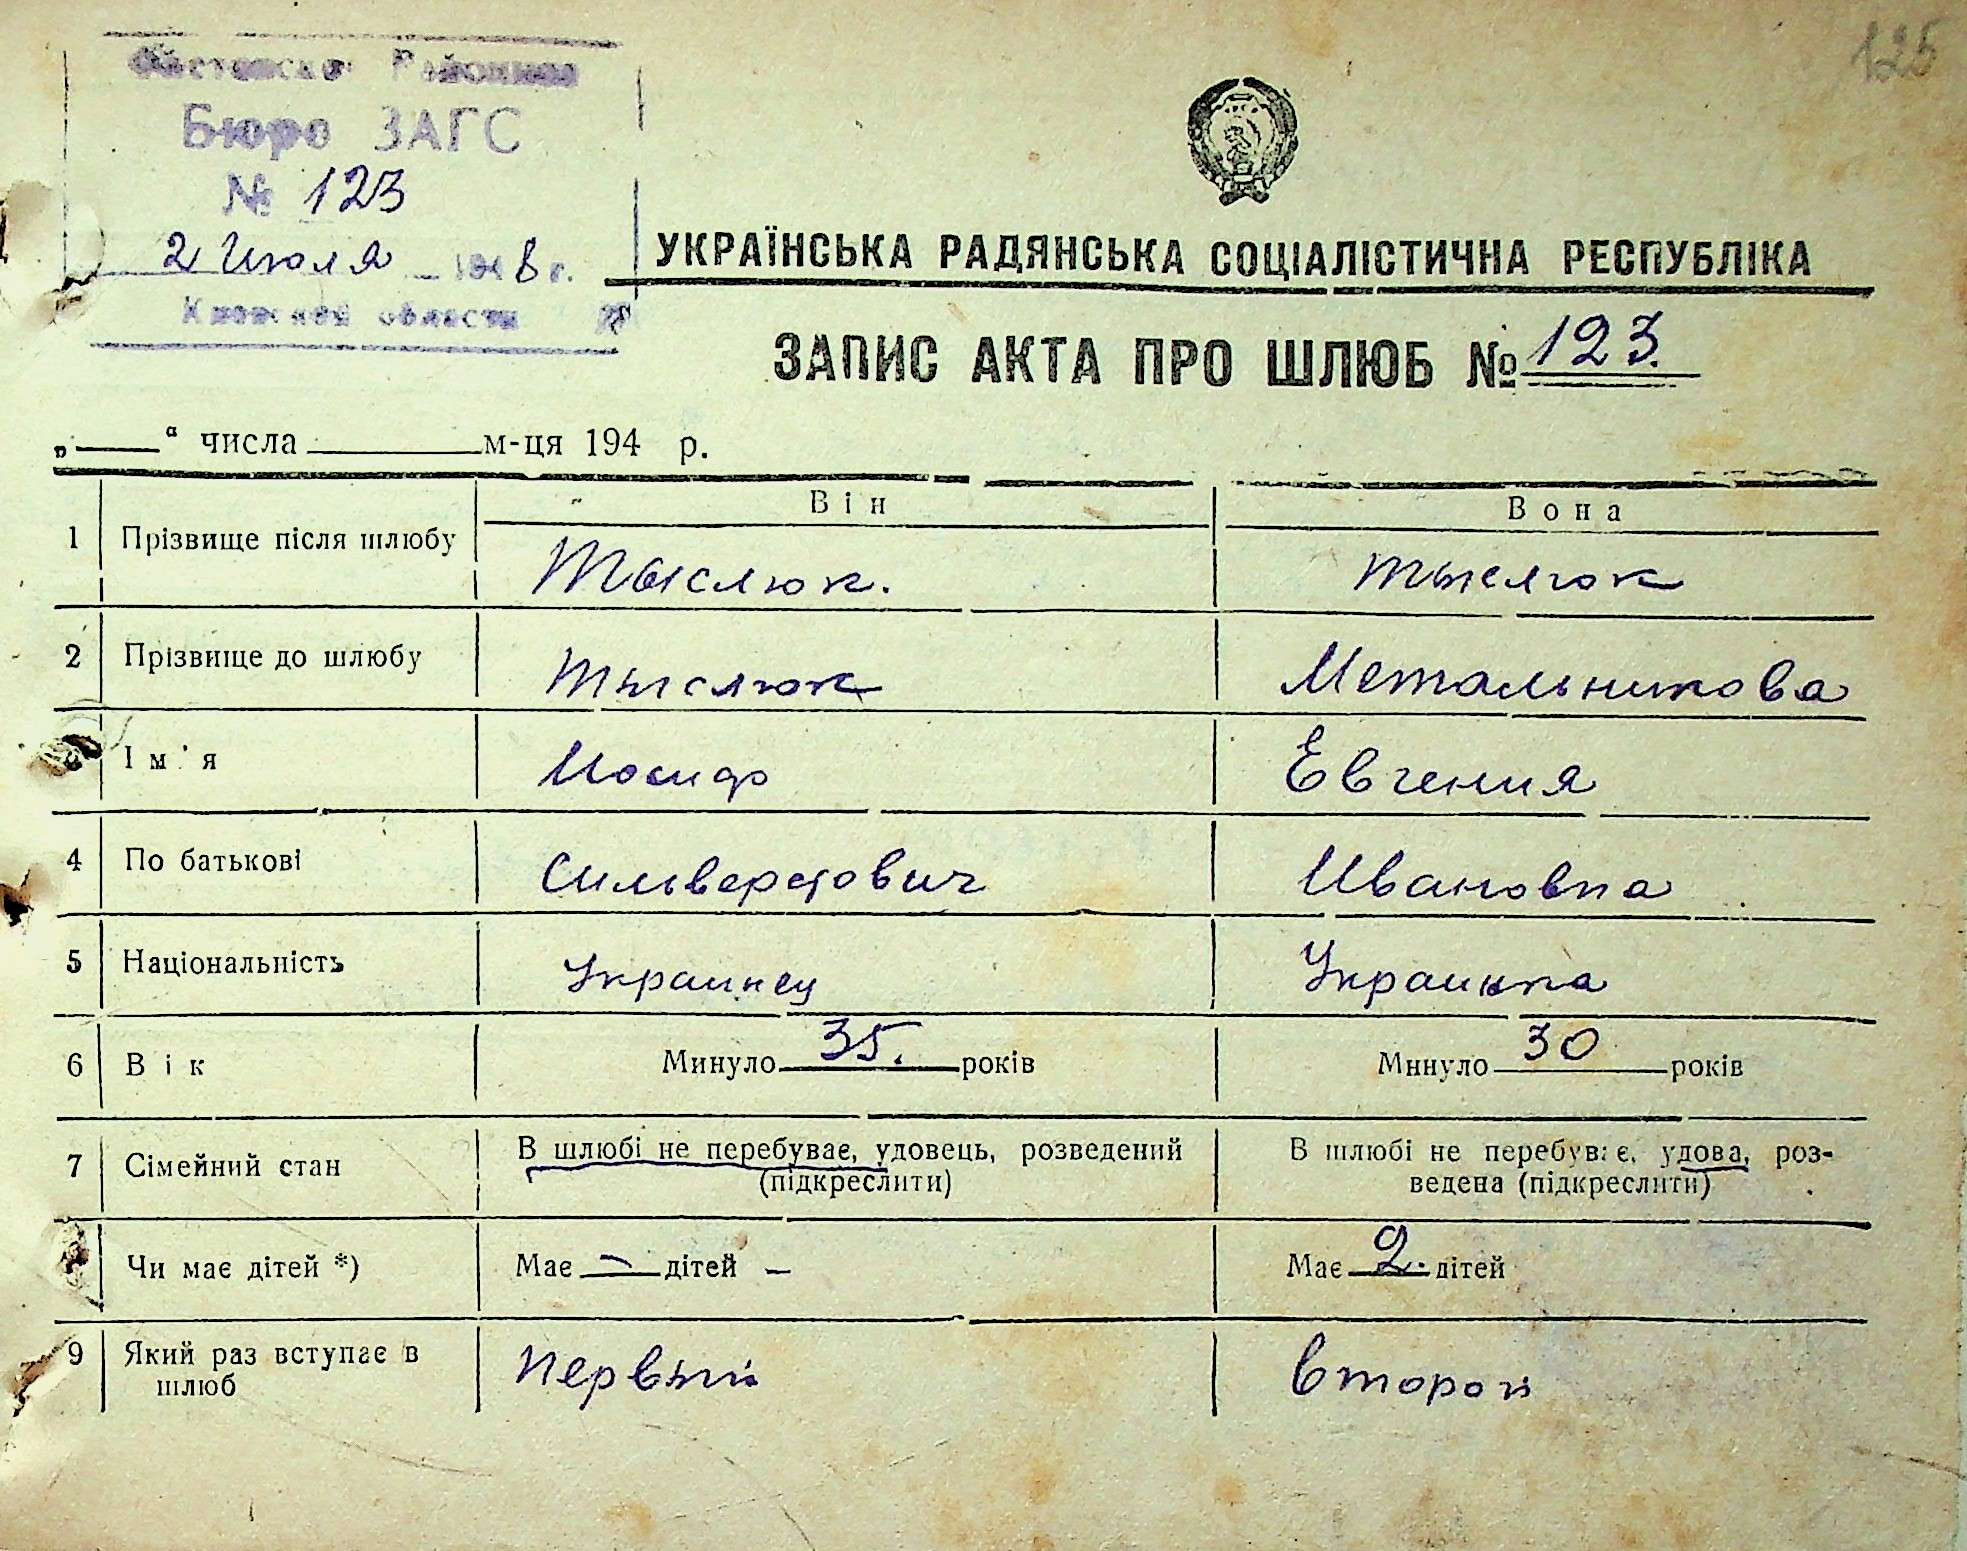 125
Районное
Бюро ЗАГС
№ 123
2 Июля 1948 г.
Киевской области
УКРАЇНСЬКА РАДЯНСЬКА СОЦІАЛІСТИЧНА РЕСПУБЛІКА
ЗАПИС АКТА ПРО ШЛЮБ № 123.
„ “ числа м-ця 194 р.
Він Вона
1 Прізвище після шлюбу Тыслюк. Тыслюк
2 Прізвище до шлюбу Тыслюк Метальникова
Ім'я Иосиф Евгения
4 По батькові Сильверстович Ивановна
5 Національність Украинец Украинка
6 Вік Минуло 35. років Минуло 30 років
7 Сімейний стан В шлюбі не перебуває, удовець, розведений В шлюбі не перебуває, удова, роз-
(підкреслити) ведена (підкреслити)
Чи має дітей *) Має — дітей — Має 2. дітей
9 Який раз вступає в шлюб Первый Второй